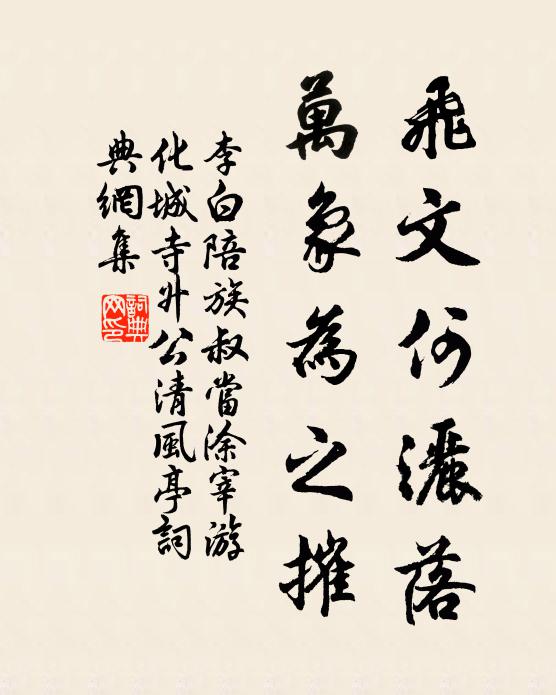 飛文何灑落
萬象為之摧
李白陪族叔當涂宰游
化城寺升公清風亭詞
典網集
詞典
网印